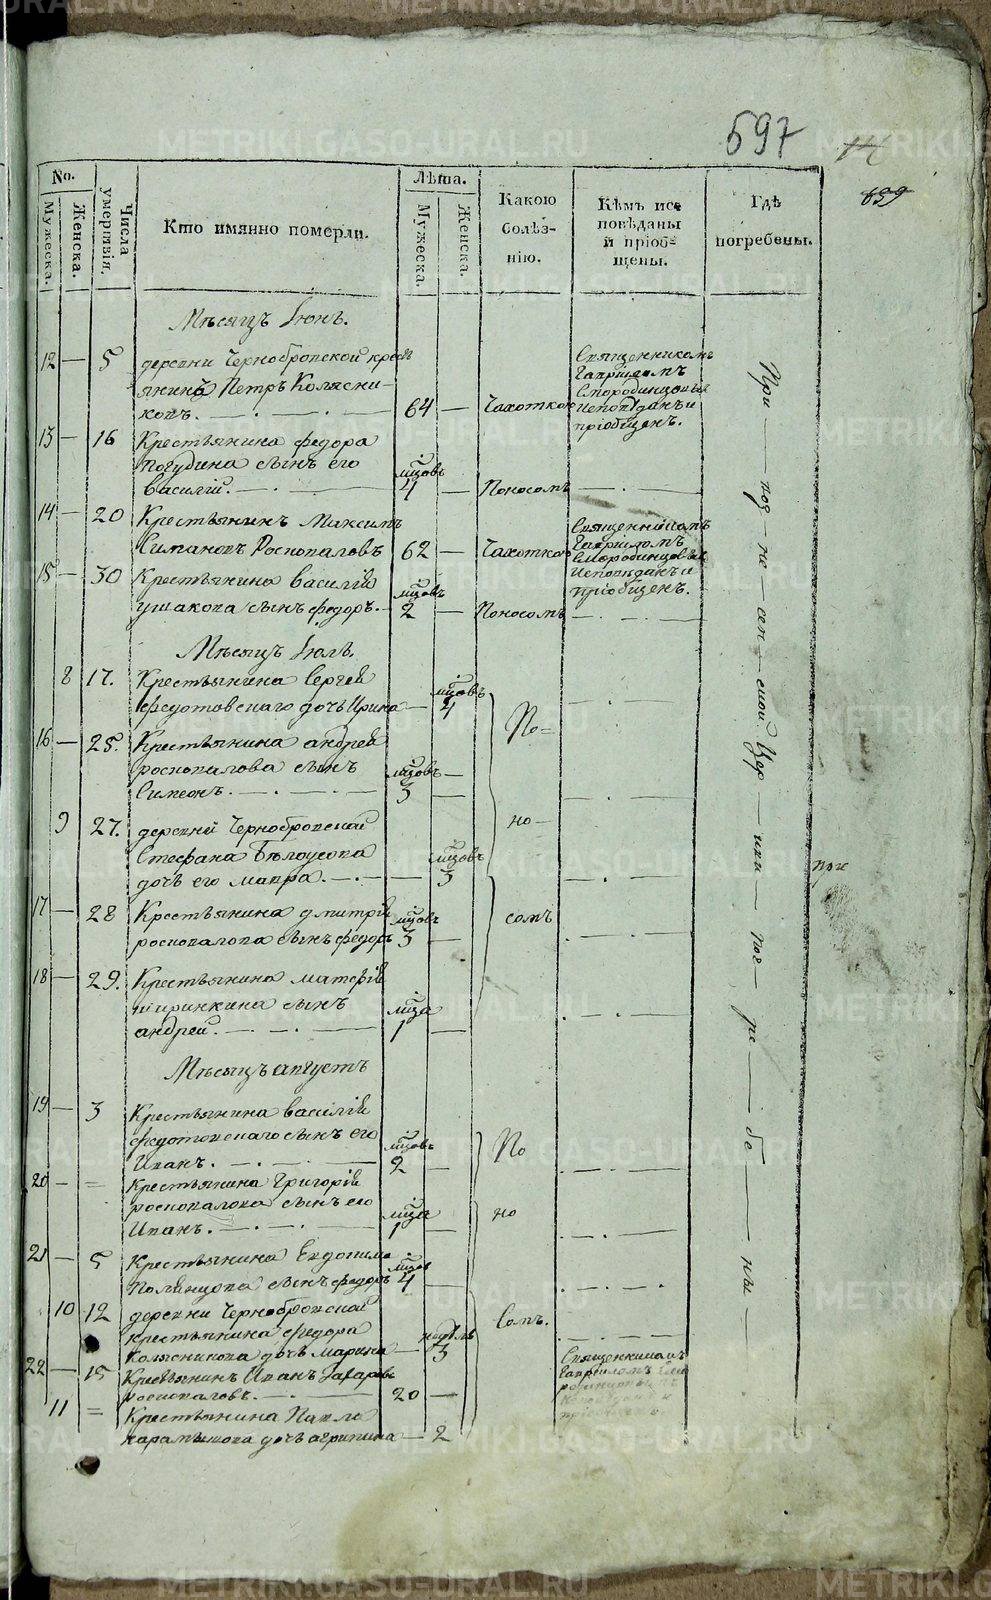 597
14
659
No.
Мужеска.
Женска.
Числа умертвія.
Кто имянно померли.
Лѣта.
Мужеска.
Женска.
Какою болѣз-нію.
Кѣмъ исповѣданы и пріоб-щены.
Гдѣ погребены.
Мѣсяцъ Іюнь.
12 — 5 деревни Чернобровской крест
янинъ Петръ Колясни-
ковъ. — 64 — Чахоткою
Священникомъ
Гавріиломъ
Смородинцовымъ
исповѣданъ и
пріобщенъ.
13 — 16 Крестьянина Федора
Погудина сынъ его
Василій. — мѣсцовъ 4 — Поносомъ
14 — 20 Крестьянинъ Максимъ
Симановъ Роспопаловъ 62 — Чахоткою
Священникомъ
Гавріиломъ
Смородинцовымъ
исповѣданъ и
пріобщенъ.
15 — 30 Крестьянина Василія
Ушакова сынъ Федоръ. мѣсцовъ 2 — Поносомъ
Мѣсяцъ Іюль.
8 17. Крестьянина Сергея
Федотовскаго дочь Ирина — мѣсцовъ 4
16 — 25. Крестьянина Андрея
роспопалова сынъ
Симеонъ. — мѣсцовъ 3 —
9 27. деревни Чернобровской
Стефана Бѣлоусова
дочь его Мавра. — мѣсцовъ 3
17 — 28 Крестьянина Дмитрія
роспопалова сынъ Федоръ мѣсцовъ 3 —
18 — 29. Крестьянина Матфія
Ширинкина сынъ
Андрей. — мѣсца 1 —
По=
но—
сомъ
Мѣсяцъ Августъ
19 — 3 Крестьянина Василія
Федотовскаго сынъ его
Иванъ. — мѣсцовъ 2 —
20 — = Крестьянина Григорія
роспопалова сынъ его
Иванъ. — мѣсца 1 —
21 — 5 Крестьянина Евдокима
сынъ Федоръ мѣсцов 4 —
10 12 деревни Чернобровской
крестьянина Федора
Колясникова дочь Марина — недѣль 3
По
но
сомъ.
22 — 15 Крестьянинъ Иванъ Захаровъ
роспопаловъ. — 20 —
Священникомъ
Гавріиломъ Смо
родинцовымъ
11 = Крестьянина Павла
дочь Агрипина — 2
При — ход — на — сен — ской Цер — кви — пог — ре — бе — ны —
при
METRIKI.GASO-URAL.RU